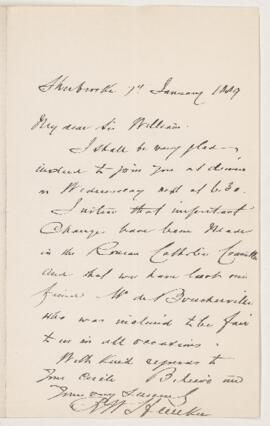 Sherbrooke 7th January 1889
My dear Sir William
I shall be very glad
indeed to join you at dinner
on Wednesday next at 6.30.
I notice that important
changes have been made
in the Roman Catholic Committee
and that we have lost one
friend Mr de Boucherville
who was inclined to be fair
to us in all occasions.
With kind regards to
your circle Believe me
Yours very sincerely
R W Heneker